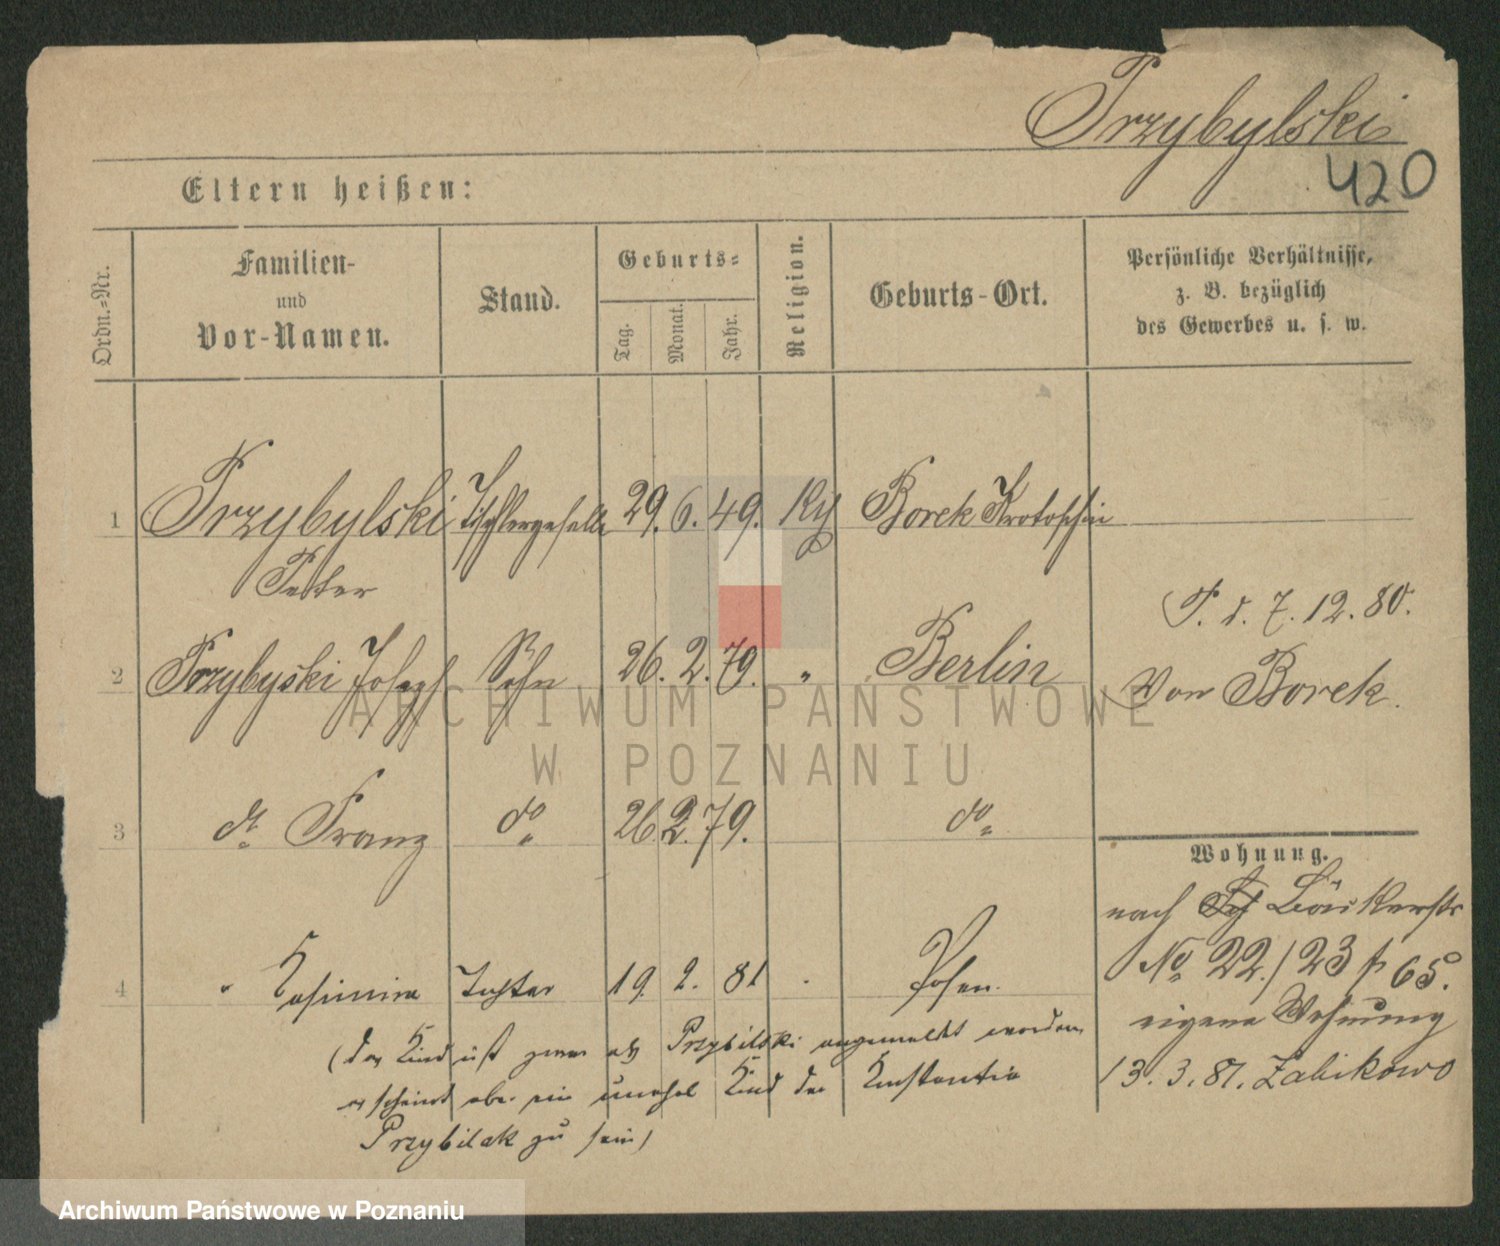 Przybylski
420
Eltern heißen:
Ordn.-Nr.
Familien-
und
Vor-Namen.
Stand.
Geburts-
Tag.
Monat.
Jahr.
Religion.
Geburts-Ort.
Persönliche Verhältnisse,
z. B. bezüglich
des Gewerbes u. s. w.
1 Przybylski Tischlergeselle 29. 6. 49. Borek Krotoschin
Peter
P. d. 7. 12. 80.
2 Przybyski Joseph Sohn 26. 2. 79. " Berlin
Von Borek.
ARCHIWUM PAŃSTWOWE
W POZNANIU
3 do Franz do 26. 2. 79. do
Wohnung.
nach Bäckerstr
No 22./23 b 65.
4 " Kasimira Tochter 19. 2. 81 Posen.
eigene Wohnung
13. 3. 81. Zabikowo
(das Kind ist zwar als Przybilski angemeldet worden
scheint aber ein unehel Kind der Konstantia
Przybilak zu sein)
Archiwum Państwowe w Poznaniu